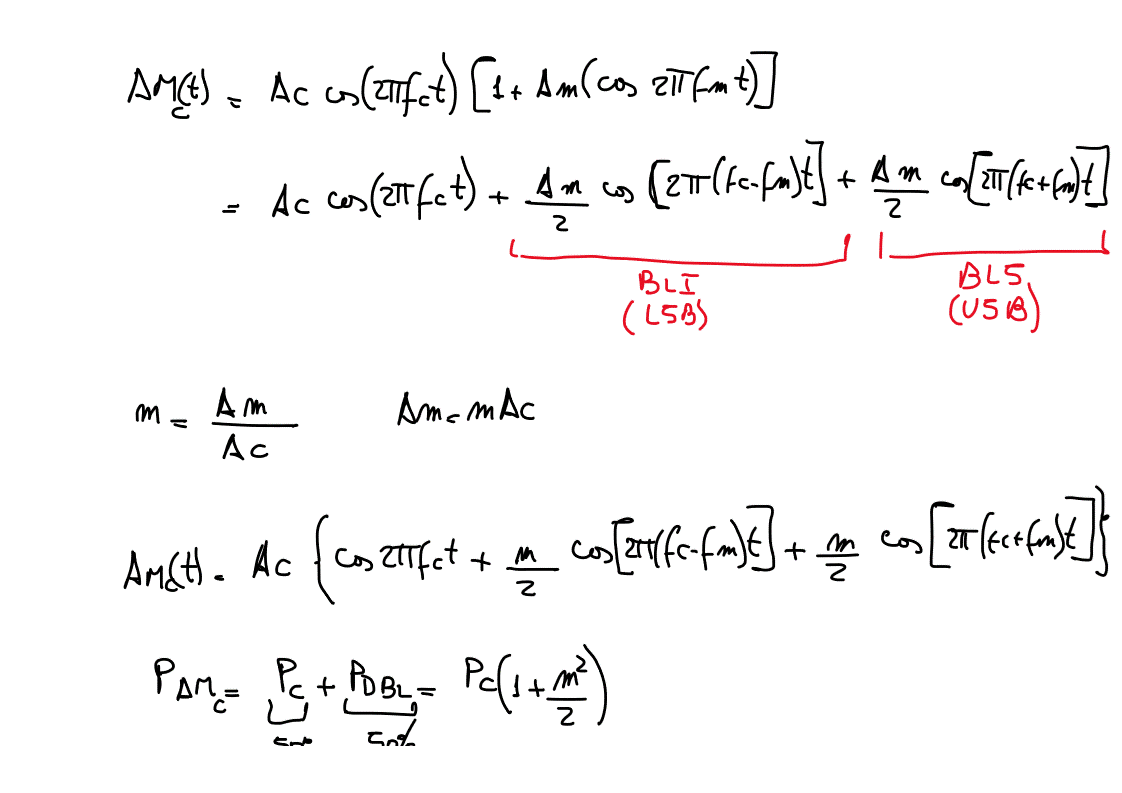 AM_c(t) = Ac cos(2πf_c t) [1 + Am(cos 2πf_m t)]
= Ac cos(2πf_c t) + Am/2 cos [2π(fc-fm)t] + Am/2 cos[2π(fc+fm)t]
BLI BLS
(LSB) (USB)
m = Am/Ac Am = mAc
AM_c(t) = Ac {cos 2πf_c t + m/2 cos[2π(fc-fm)t] + m/2 cos[2π(fc+fm)t]}
P_AM_c = P_C + P_DBL = P_C(1 + m²/2)
50%